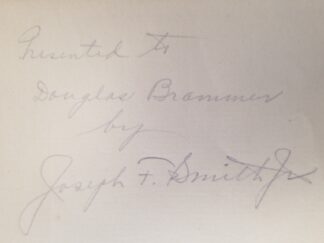 Presented to
Douglas Brammer
by
Joseph F. Smith Jr